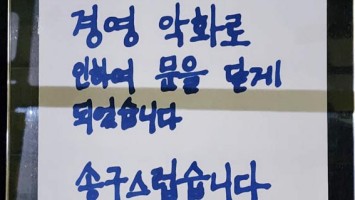 경영 악화로
인하여 문을 닫게
되었습니다
송구스럽습니다